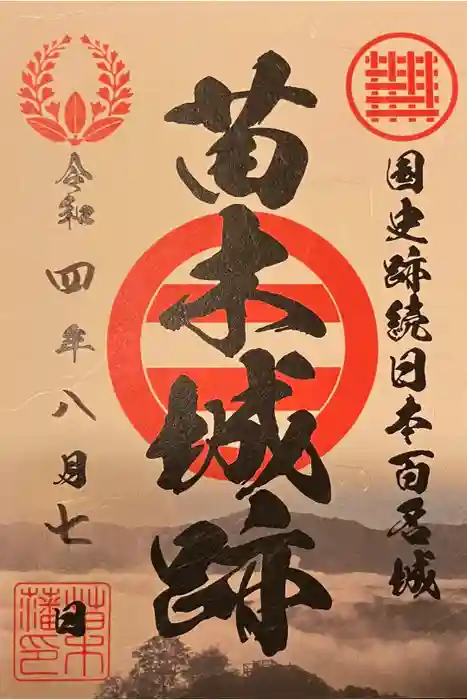 国史跡続日本百名城
苗木城跡
令和四年八月七日
苗木
藩印